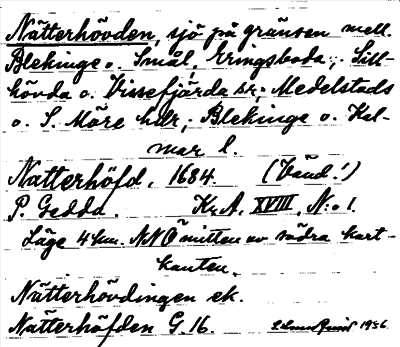 Nätterhövden, sjö på gränsen mell.
Blekinge o. Smål., Eringsboda, Sill-
hövda o. Vissefjärda sr; Medelstads
o. S. Möre hdr; Blekinge o. Kal-
mar l.
Natterhöfd, 1684. (Vänd!)
P. Gedda. Kr.A. XVIII, N:o 1.
Läge 4 km. NNÖ mitten av södra kart-
kanten.
Nätterhövdingen ek.
Natterhöfden G. 16. 1936.